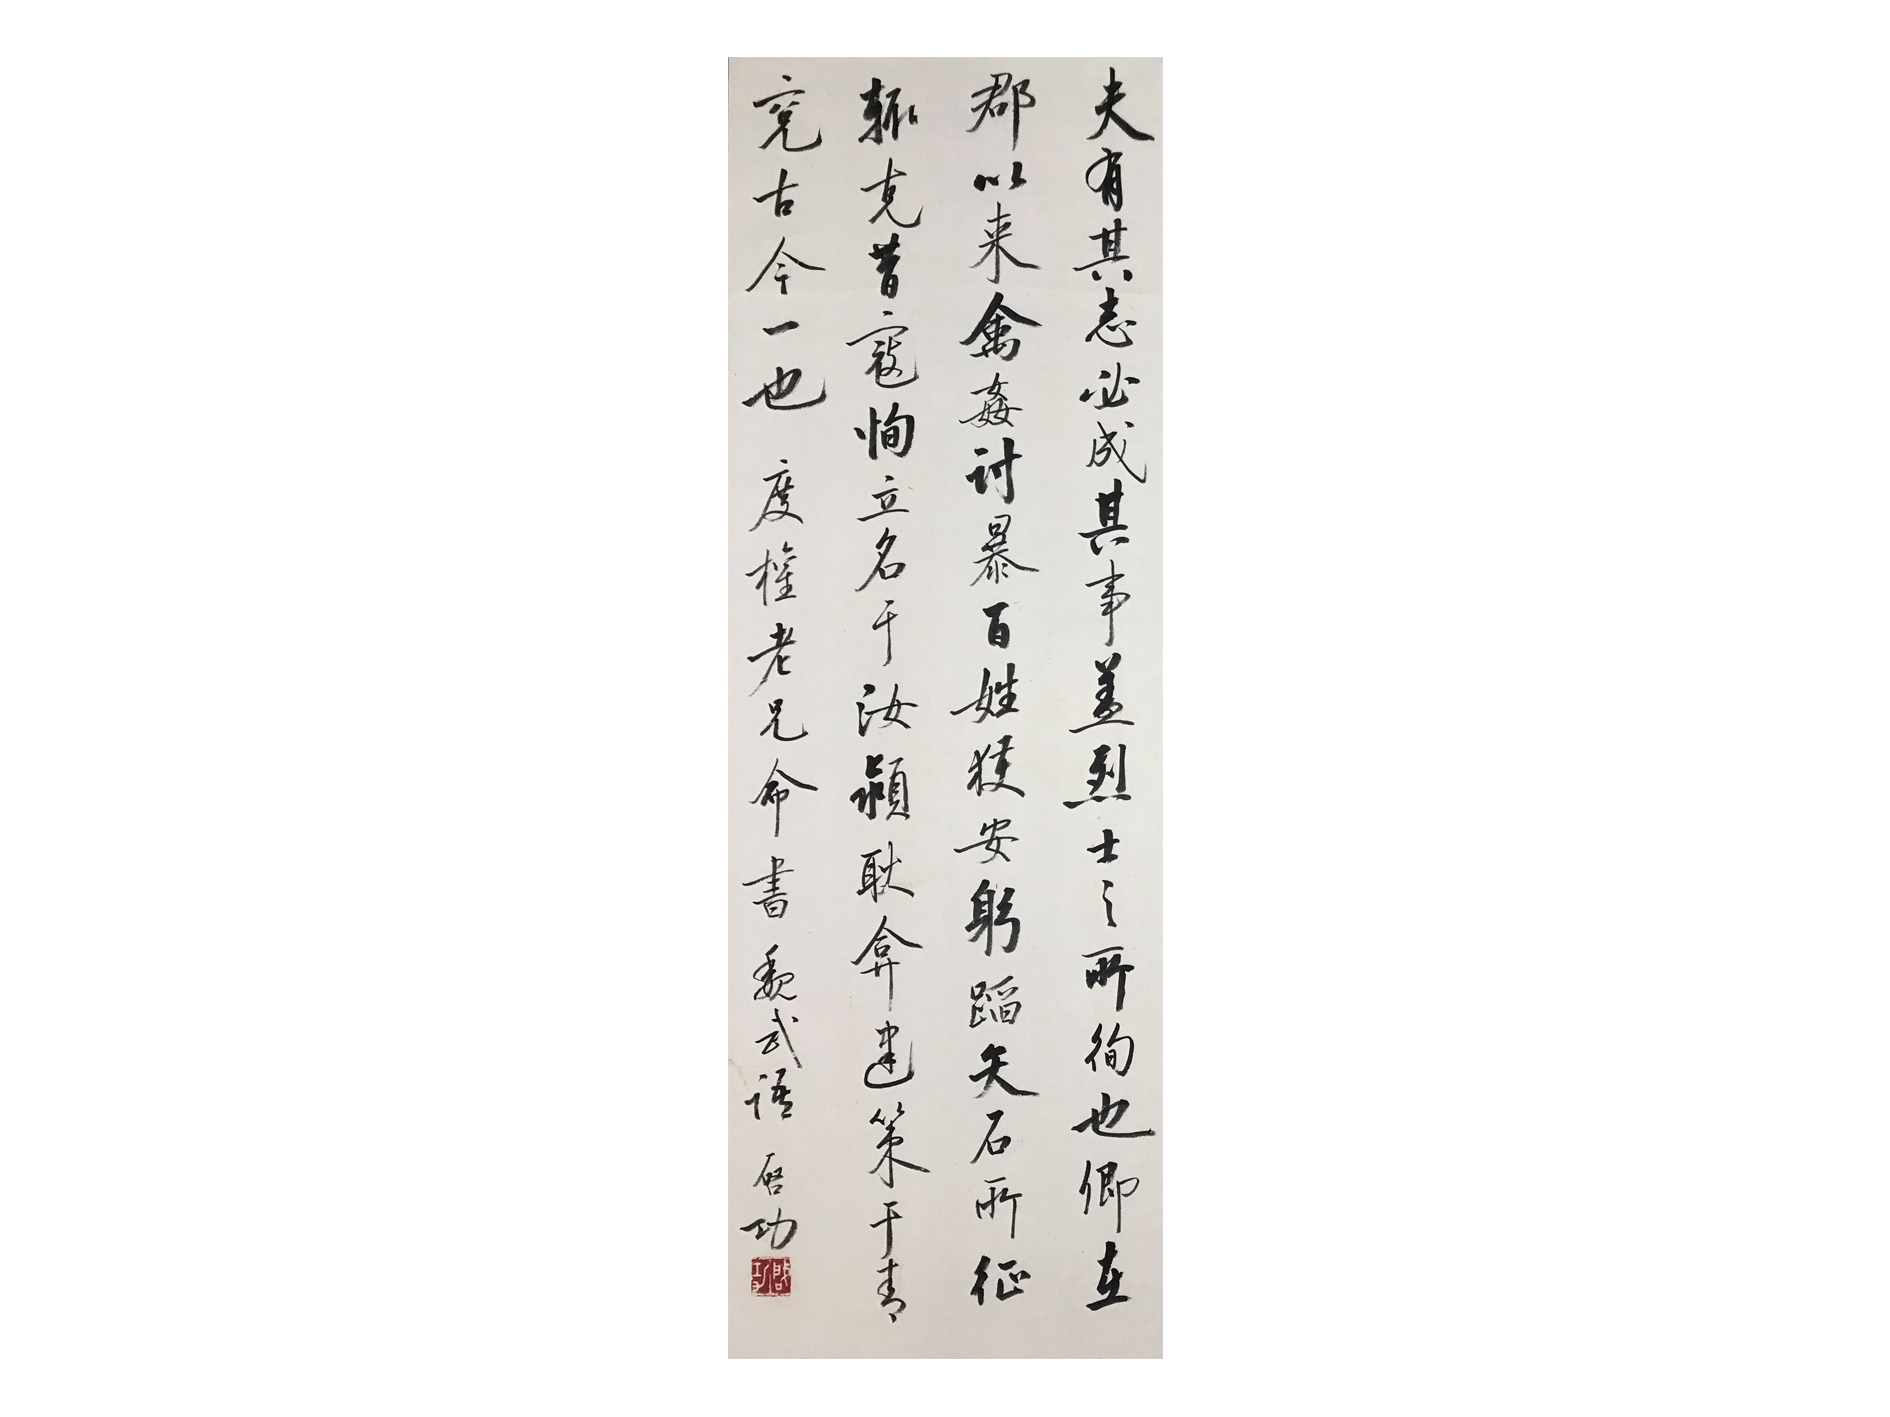 夫有其志必成其事蓋烈士之所徇也卿在
郡以來禽姦討暴百姓獲安躬蹈矢石所征
輒克昔寇恂立名于汝潁耿弇建策于青
兗古今一也 度權老兄命書魏武語 启功
啟功